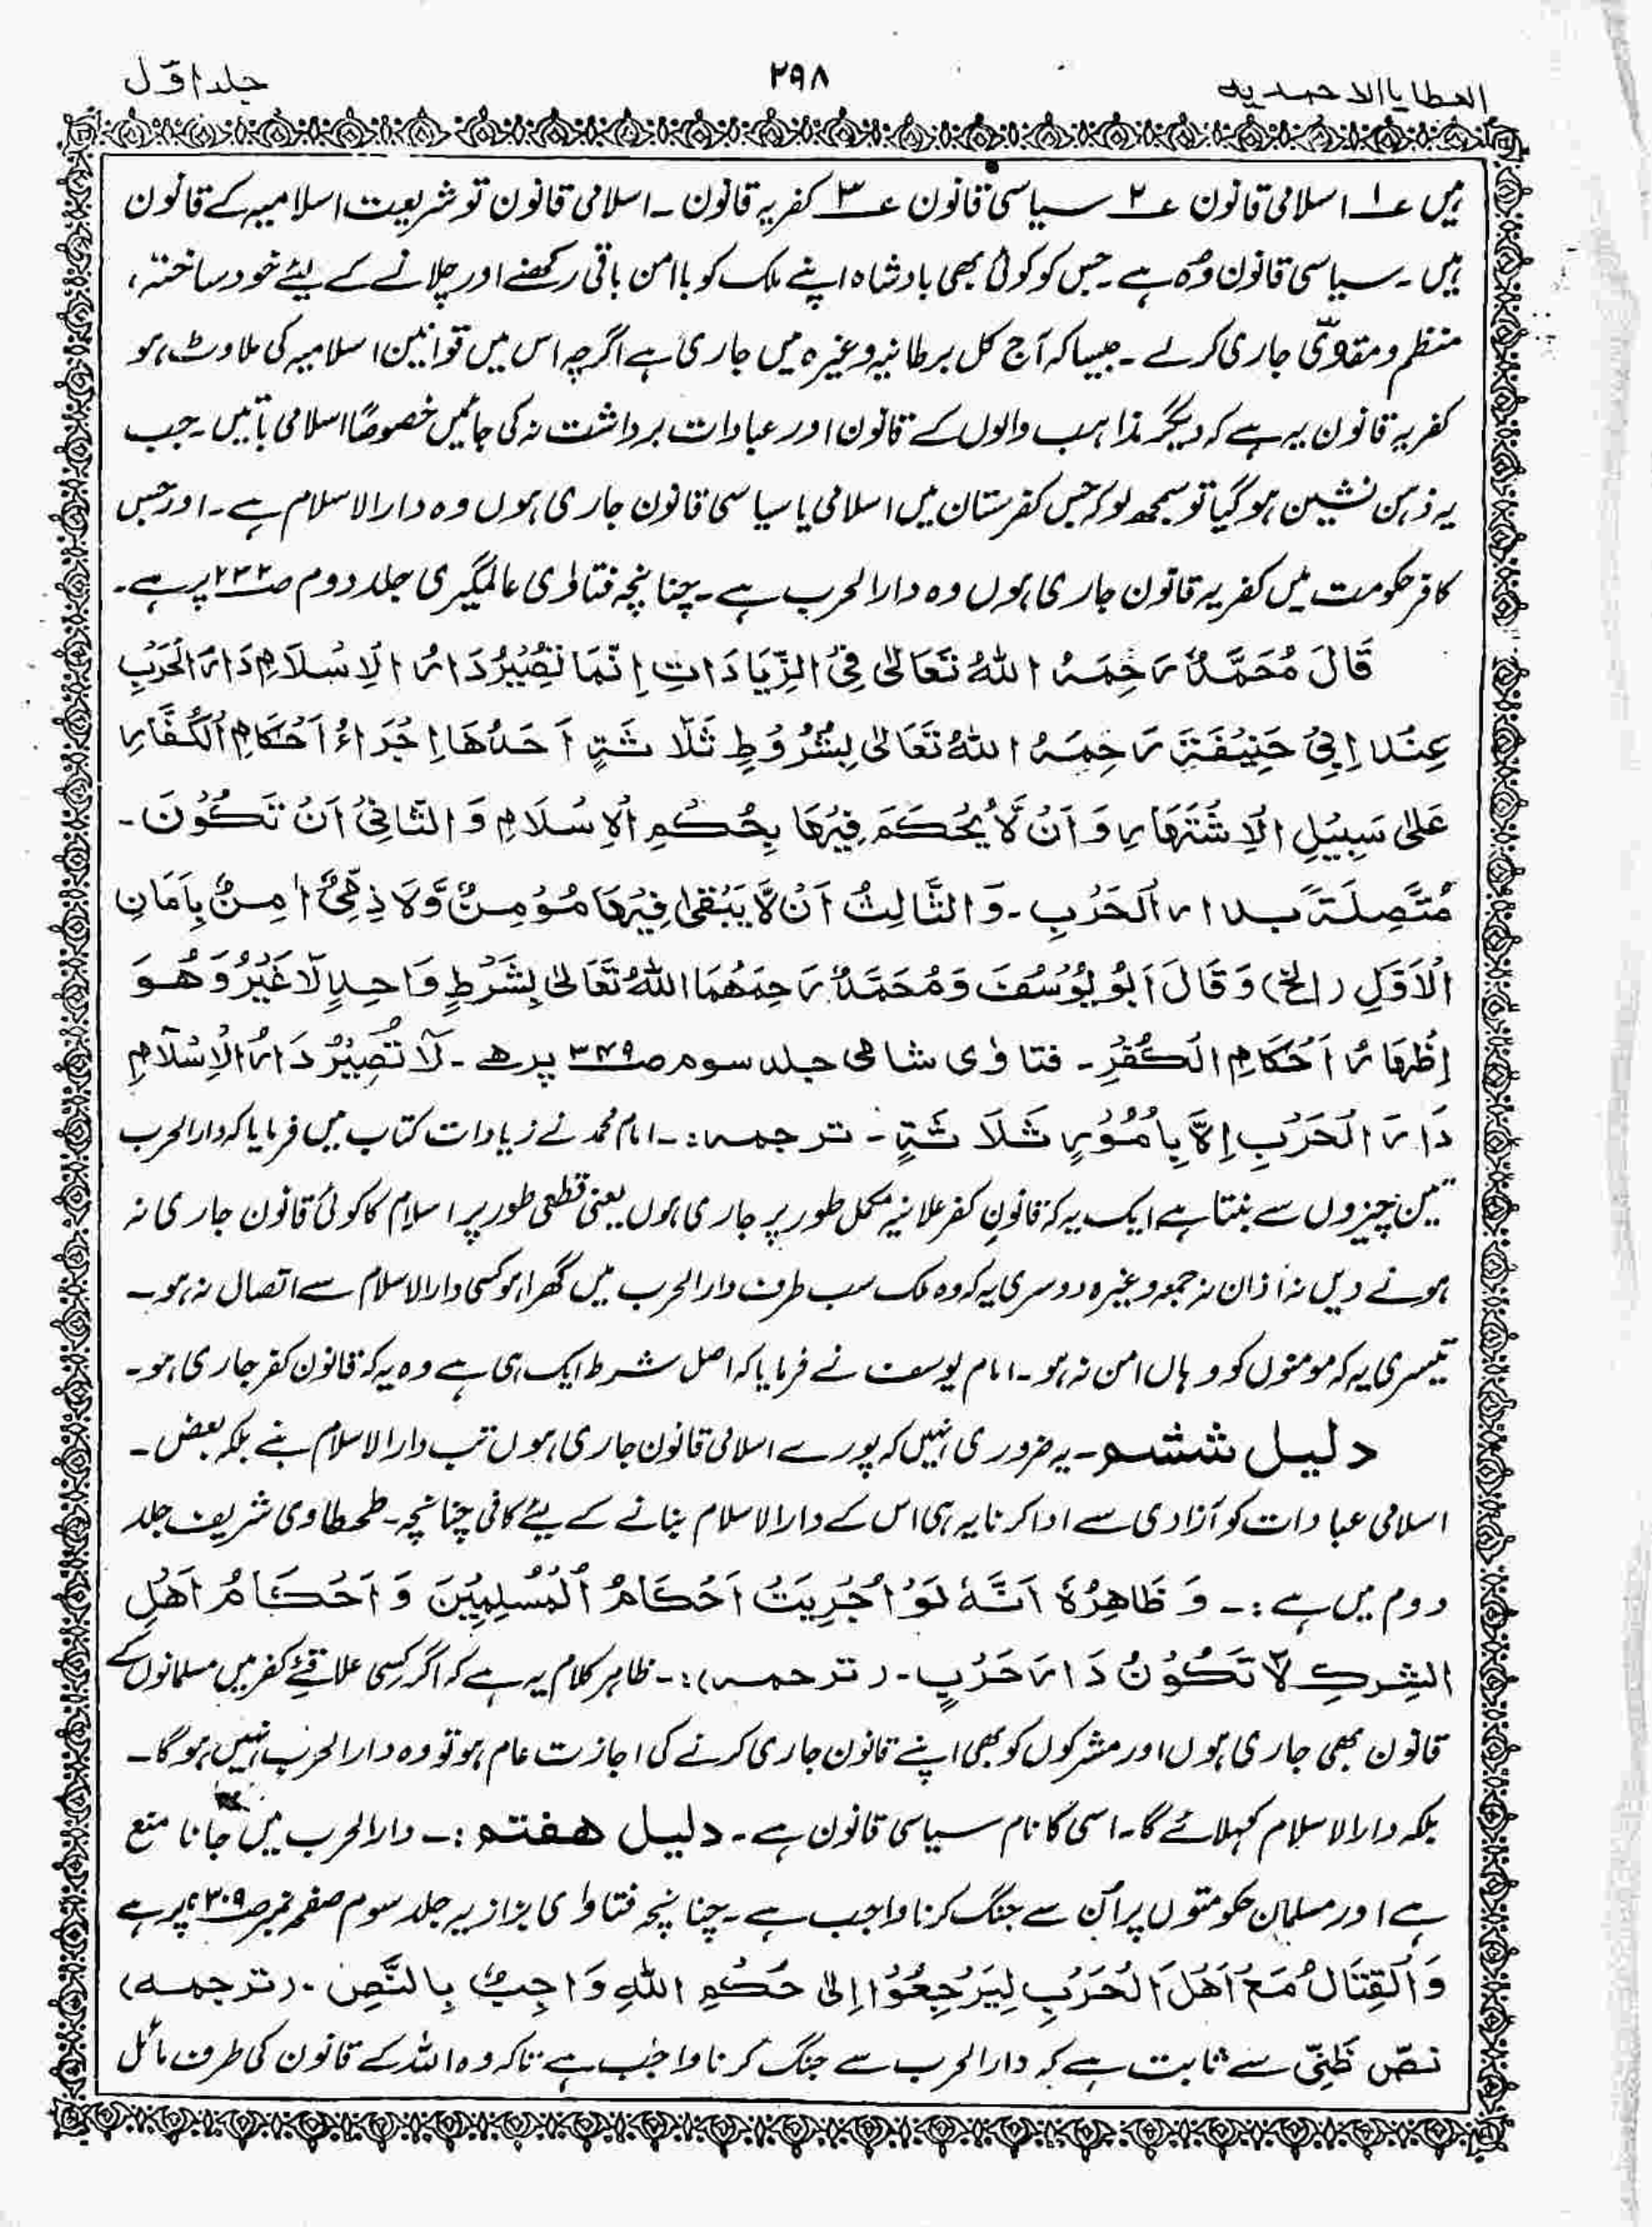 العطایا الاحمدیه
۲۹۸
جلد اوّل
ہیں ۱ اسلامی قانون ۲ سیاسی قانون ۳ کفریہ قانون ۔ اسلامی قانون تو شریعت اسلامیہ کے قانون
ہیں ۔ سیاسی قانون وہ ہے ۔ جس کو کوئی بھی بادشاہ اپنے ملک کو باامن باقی رکھنے اور چلانے کے لیئے خود ساختہ،
منظم و مقویّ جاری کرلے ۔ جیسا کہ آج کل برطانیہ وغیرہ میں جاری ہے اگرچہ اس میں قوانین اسلامیہ کی ملاوٹ ہو
کفریہ قانون یہ ہے کہ دیگر مذاہب والوں کے قانون اور عبادات برداشت نہ کی جائیں خصوصًا اسلامی باتیں ۔ جب
یہ ذہن نشین ہو گیا تو سمجھ لو کہ جس کفرستان میں اسلامی یا سیاسی قانون جاری ہوں وہ دارالاسلام ہے ۔ اور جس
کافر حکومت میں کفریہ قانون جاری ہوں وہ دارالحرب ہے ۔ چنانچہ فتاوٰی عالمگیری جلد دوم صـ۲۳۲ پر ہے ۔
قَالَ مُحَمَّدٌ رَحِمَهُ اللهُ تَعَالٰى فِيْ الزِّيَادَاتِ اِنَّمَا تَصِيْرُ دَارُ الْاِسْلَامِ دَارَ الْحَرْبِ
عِنْدَ اِبِيْ حَنِيْفَةَ رَحِمَهُ اللهُ تَعَالٰى بِشُرُوْطٍ ثَلَاثَةٍ اَحَدُهَا اِجْرَاءُ اَحْكَامِ الْكُفَّارِ
عَلٰى سَبِيْلِ الْاِشْتِهَارِ وَ اَنْ لَّا يُحْكَمَ فِيْهَا بِحُكْمِ الْاِسْلَامِ وَ الثَّانِيْ اَنْ تَكُوْنَ ۔
مُتَّصِلَةً بِدَارِ الْحَرْبِ ۔ وَ الثَّالِثُ اَنْ لَّا يَبْقٰى فِيْهَا مُؤْمِنٌ وَّلَا ذِمِّيٌّ اٰمِنٌ بِاَمَانِ
الْاَوَّلِ (الخ) وَ قَالَ اَبُوْ يُوْسُفَ وَ مُحَمَّدٌ رَحِمَهُمَا اللهُ تَعَالٰى بِشَرْطٍ وَاحِدٍ لَا غَيْرُ وَ هُوَ
اِظْهَارُ اَحْكَامِ الْكُفْرِ ۔ فتاوٰی شامی جلد سوم صـ۳۴۹ پر ہے ۔ لَا تُصِيْرُ دَارُ الْاِسْلَامِ
دَارَ الْحَرْبِ اِلَّا بِاُمُوْرٍ ثَلَاثَةٍ ۔ ترجمہ :۔ امام محمد نے زیادات کتاب میں فرمایا کہ دارالحرب
تین چیزوں سے بنتا ہے ایک یہ کہ قانونِ کفر علانیہ مکمل طور پر جاری ہوں یعنی قطعی طور پر اسلام کا کوئی قانون جاری نہ
ہونے دیں نہ اذان نہ جمعہ وغیرہ دوسری یہ کہ وہ ملک سب طرف دارالحرب میں گھرا ہو کسی دارالاسلام سے اتصال نہ ہو ۔
تیسری یہ کہ مومنوں کو وہاں امن نہ ہو ۔ امام یوسف نے فرمایا کہ اصل شرط ایک ہی ہے وہ یہ کہ قانون کفر جاری ہو ۔
دلیل ششم ۔ یہ ضروری نہیں کہ پورے اسلامی قانون جاری ہوں تب دارالاسلام بنے بلکہ بعض ۔
اسلامی عبادات کو آزادی سے ادا کرنا یہ ہی اس کے دارالاسلام بنانے کے لیئے کافی چنانچہ ۔ طحطاوی شریف جلد
دوم میں ہے :۔ وَ ظَاهِرُهٗ اَنَّهٗ لَوْ اُجْرِيَتْ اَحْكَامُ الْمُسْلِمِيْنَ وَ اَحْكَامُ اَهْلِ
الشِركِ لَا تَكُوْنُ دَارَ حَرْبٍ ۔ (ترجمہ) :۔ ظاہر کلام یہ ہے کہ اگر کسی علاقۓ کفر میں مسلمانوں کے
قانون بھی جاری ہوں اور مشرکوں کو بھی اپنے قانون جاری کرنے کی اجازت عام ہو تو وہ دارالحرب نہیں ہوگا ۔
بلکہ دارالاسلام کہلائے گا ۔ اسی کا نام سیاسی قانون ہے ۔ دلیل ھفتم :۔ دارالحرب میں جانا منع
ہے اور مسلمان حکومتوں پر اُن سے جنگ کرنا واجب ہے ۔ چنانچہ فتاوٰی بزازیہ جلد سوم صفحہ نمبر صـ۳۰۹ پر ہے
وَ الْقِتَالُ مَعْ اَهْلِ الْحَرْبِ لِيَرْجِعُوْا اِلٰى حُكْمِ اللهِ وَاجِبٌ بِالنَّصِ ۔ (ترجمہ)
نصّ ظَنّی سے ثابت ہے کہ دارالحرب سے جنگ کرنا واجب ہے تاکہ وہ اللہ کے قانون کی طرف مائل